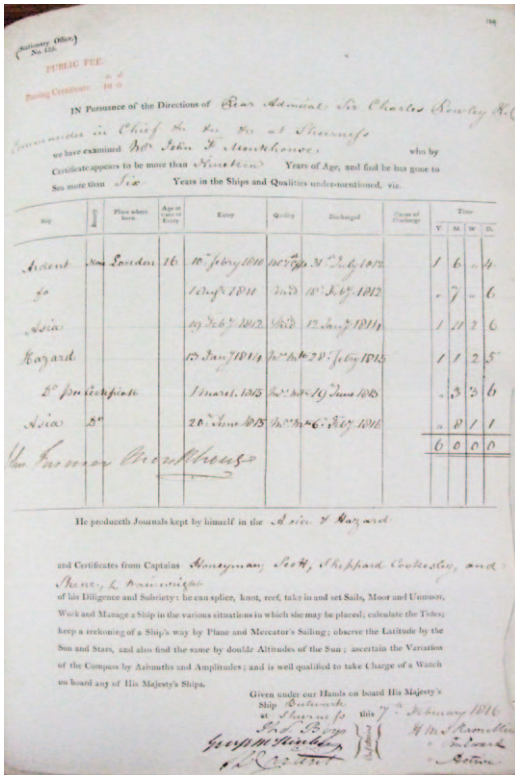 (Stationery Office,)
No. 125.
PUBLIC FEE.
Passing Certificate
IN Pursuance of the Directions of Rear Admiral Sir Charles Rowley K.C.
Commander in Chief &c &c &c at Sheerness
we have examined Mr. John F. Monkhouse who by
Certificate appears to be more than Nineteen Years of Age, and find he has gone to
Sea more than Six Years in the Ships and Qualities under-mentioned, viz.
Ship Bounty Place where born. Age at time of Entry Entry Quality Discharged Cause of Discharge Time
Y. M. W. D.
Ardent None London 16 10 Febry 1810 31 July 1 6 " 4
Do 1 Augt 1811 Mid 18 Feby 1812 " 7 " 6
Asia 19 Feby 1812 Mid 12 Jany 1814 1 11 2 6
Hazard 13 Jany 1814 28 Febry 1815 1 1 2 5
Do per Certificate 1 March 1815 19 June 1815 " 3 3 6
Asia Do 20 June 1815 6 Feby 1816 " 8 1 1
6 0 0 0
Jno. Farmer Monkhouse
He produceth Journals kept by himself in the Asia & Hazard
and Certificates from Captains Honeyman, Scott, Sheppard Cookesley, and
Skene, & Wainwright
of his Diligence and Sobriety: he can splice, knot, reef, take in and set Sails, Moor and Unmoor,
Work and Manage a Ship in the various situations in which she may be placed; calculate the Tides;
keep a reckoning of a Ship's way by Plane and Mercator's Sailing; observe the Latitude by the
Sun and Stars, and also find the same by double Altitudes of the Sun; ascertain the Variation
of the Compass by Azimuths and Amplitudes; and is well qualified to take Charge of a Watch
on board any of His Majesty's Ships.
Given under our Hands on board His Majesty's
Ship Bulwark
at Sheerness this 7th February 1816
H.M.S.
" Bulwark
" Active